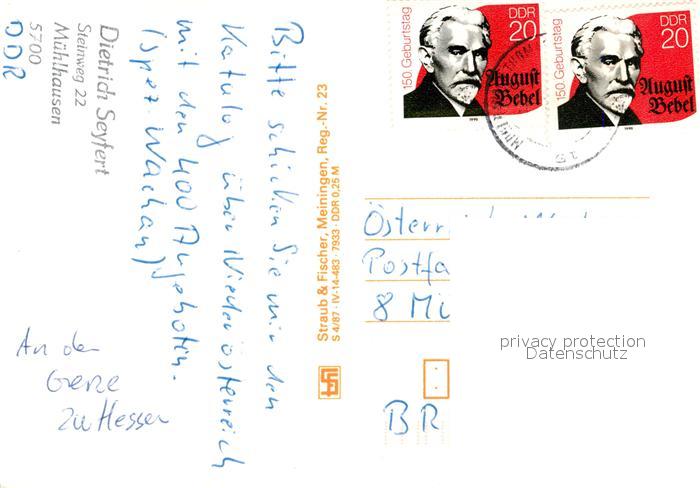 Dietrich Seyfert
Steinweg 22
Mühlhausen
5700
DDR
Bitte schicken Sie mir den
Katalog über Niederösterreich
mit den 400 Angeboten.
(spez. Wachau)
An der
Grenze
zu Hessen
Straub & Fischer, Meiningen, Reg.-Nr. 23
S 4/87 · IV-14-483 · 7933 · DDR 0,25 M
150. Geburtstag
DDR
20
August
Bebel
1990
150. Geburtstag
DDR
20
August
Bebel
1990
15
Österr
Postfa
8 Mü
BR
privacy protection
Datenschutz